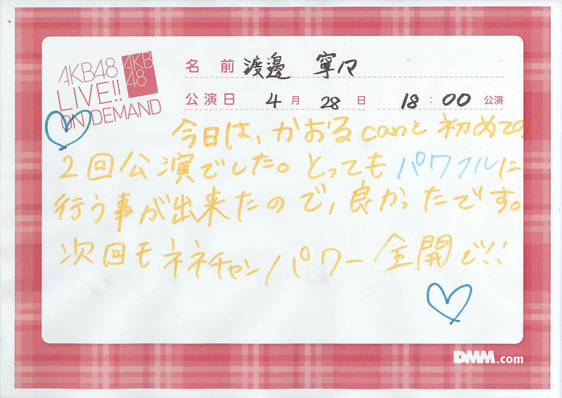 AKB48
LIVE!!
ON DEMAND
AKB
48
名前 渡邊 寧々
公演日 4月 28日 18:00 公演
今日は、かおるcanと初めての
2回公演でした。とってもパワフルに
行う事が出来たので、良かったです。
次回もネネチャンパワー全開で!!
DMM.com